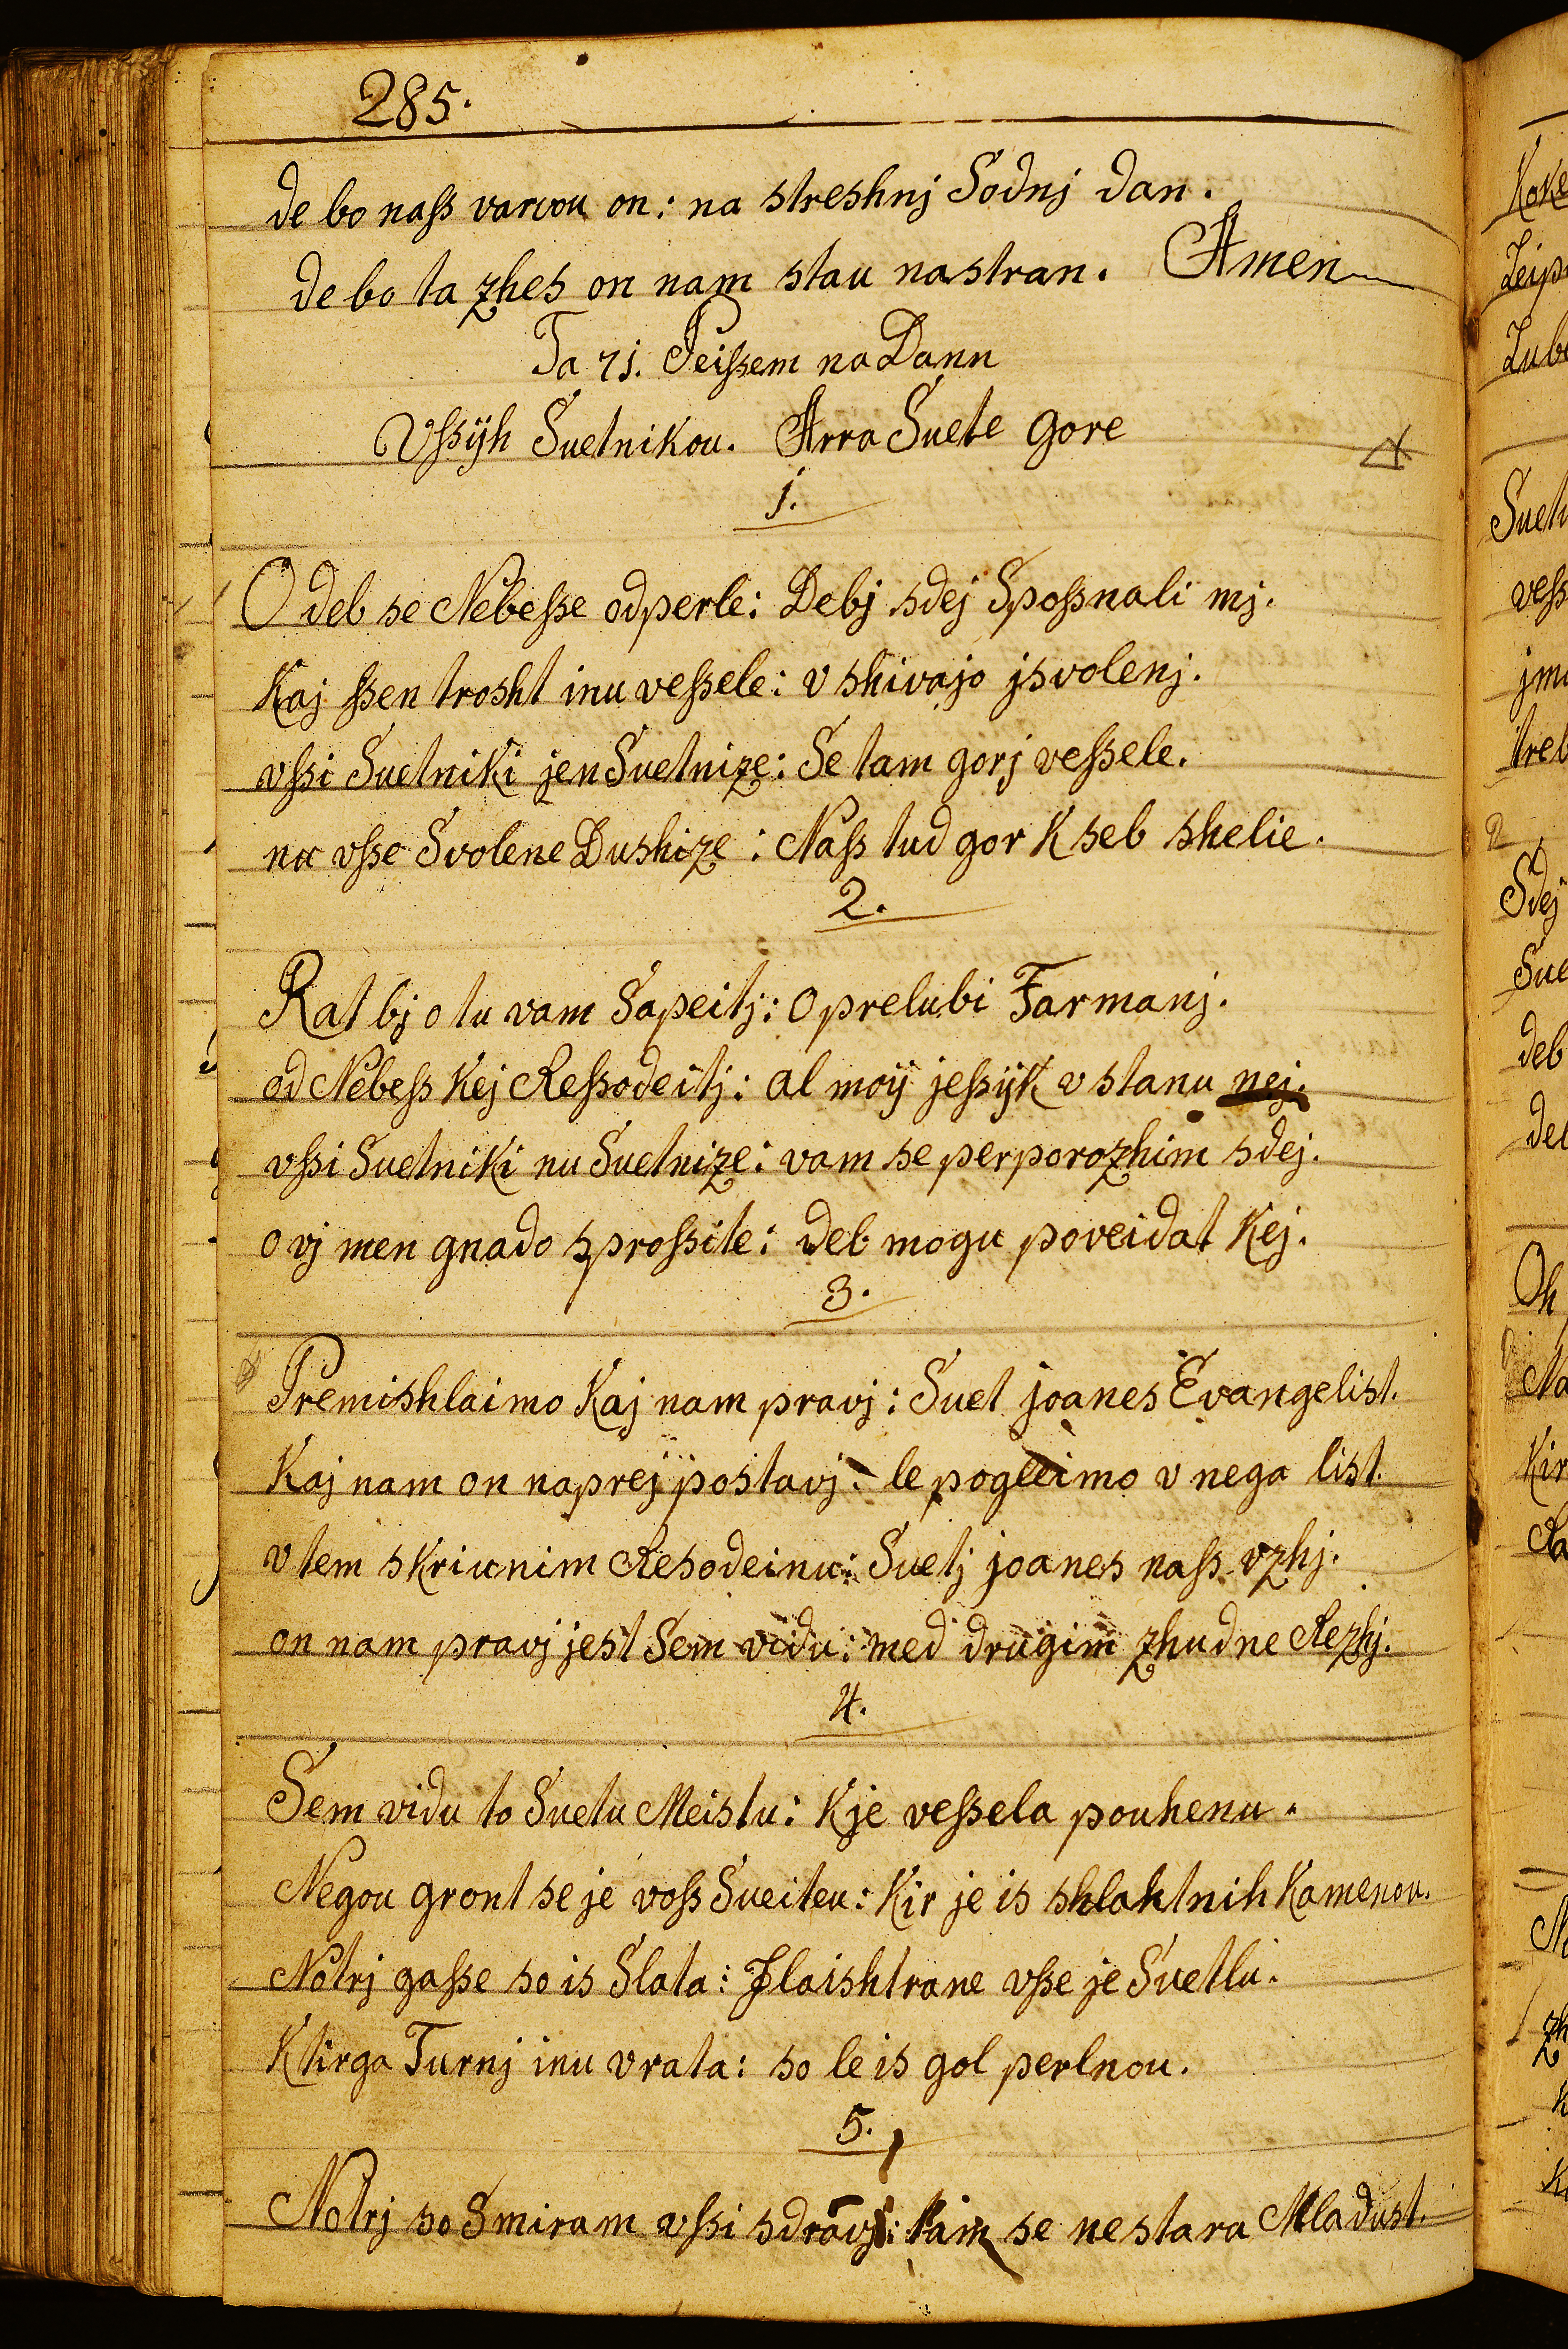 285.
de bo nass varvou on: na streshnj Sodnj dan.
de bo ta zhes on nam stau na stran. Amen
Ta 71. Peissem na Dann
Vssijh Suetnikou. Arra Suete gore
1.
O deb se Nebesse odperle: Debj sdej Spossnali mj.
Kaj ssen trosht inu vessele: v shivajo jsvolenj.
vssi Suetniki jen Suetnize: Se tam gorj vessele.
nu vsse Svolene Dushize: Nass tud gor k seb shelie.
2.
Rat bj o tu vam Sapeitj: O prelubi Farmanj.
od Nebess kej Ressodeitj: al moij jessijk v stanu nej.
vssi Suetniki nu Suetnize: vam se perporozhim sdej.
o vj men gnado sprossite: deb mogu poveidat kej.
3.
Premishlaimo kaj nam pravj: Suet joanes Evangelist.
Kaj nam on naprej postavj: le pogleimo v nega list.
v tem skriunim Resodeinu: Suetj joanes nass vzhj.
on nam pravj jest Sem vidu: med drugim zhudne Rezhj.
4.
Sem vidu to Suetu Meistu: kje vessela pouhenu.
Negou gront se je voss Sueiteu: Kir je is shlahtnih kamenou.
Notrj gasse so is Slata: Flaishtrane vsse je Suetlu.
Ktirga Turnj inu vrata: so le is gol perlnou.
5.
Notrj so Smiram vssi sdravj: tam se ne stara Mladust.
Koke
Leip
Lub
Suet
vess
jm
treb
2
Sdej
Sue
deb
de
Oh
Na
Kir
Ra
zh